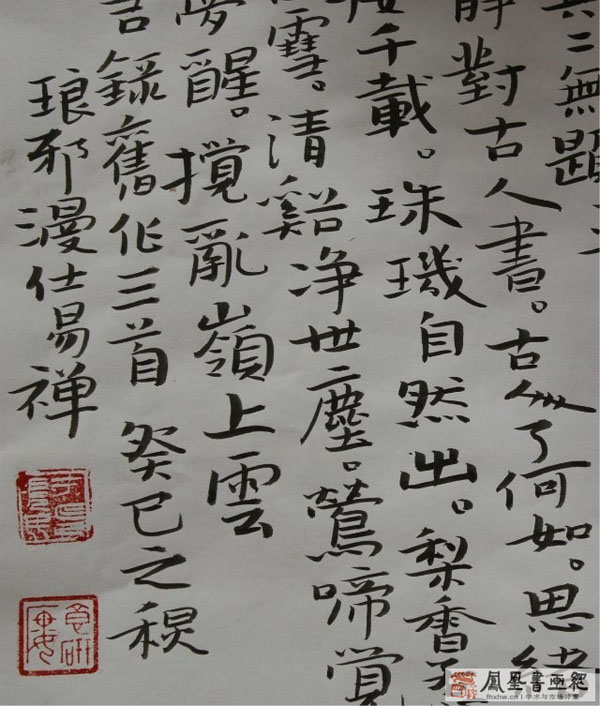 其二無題
靜對古人書。古了何如。思緒
千載。珠璣自然出。梨香
雪。清谿净世塵。鶯啼覺
夢醒。攪亂嶺上雲
錄舊作三首 癸巳之秋
琅邪漫仕易禅
鳳凰書画網